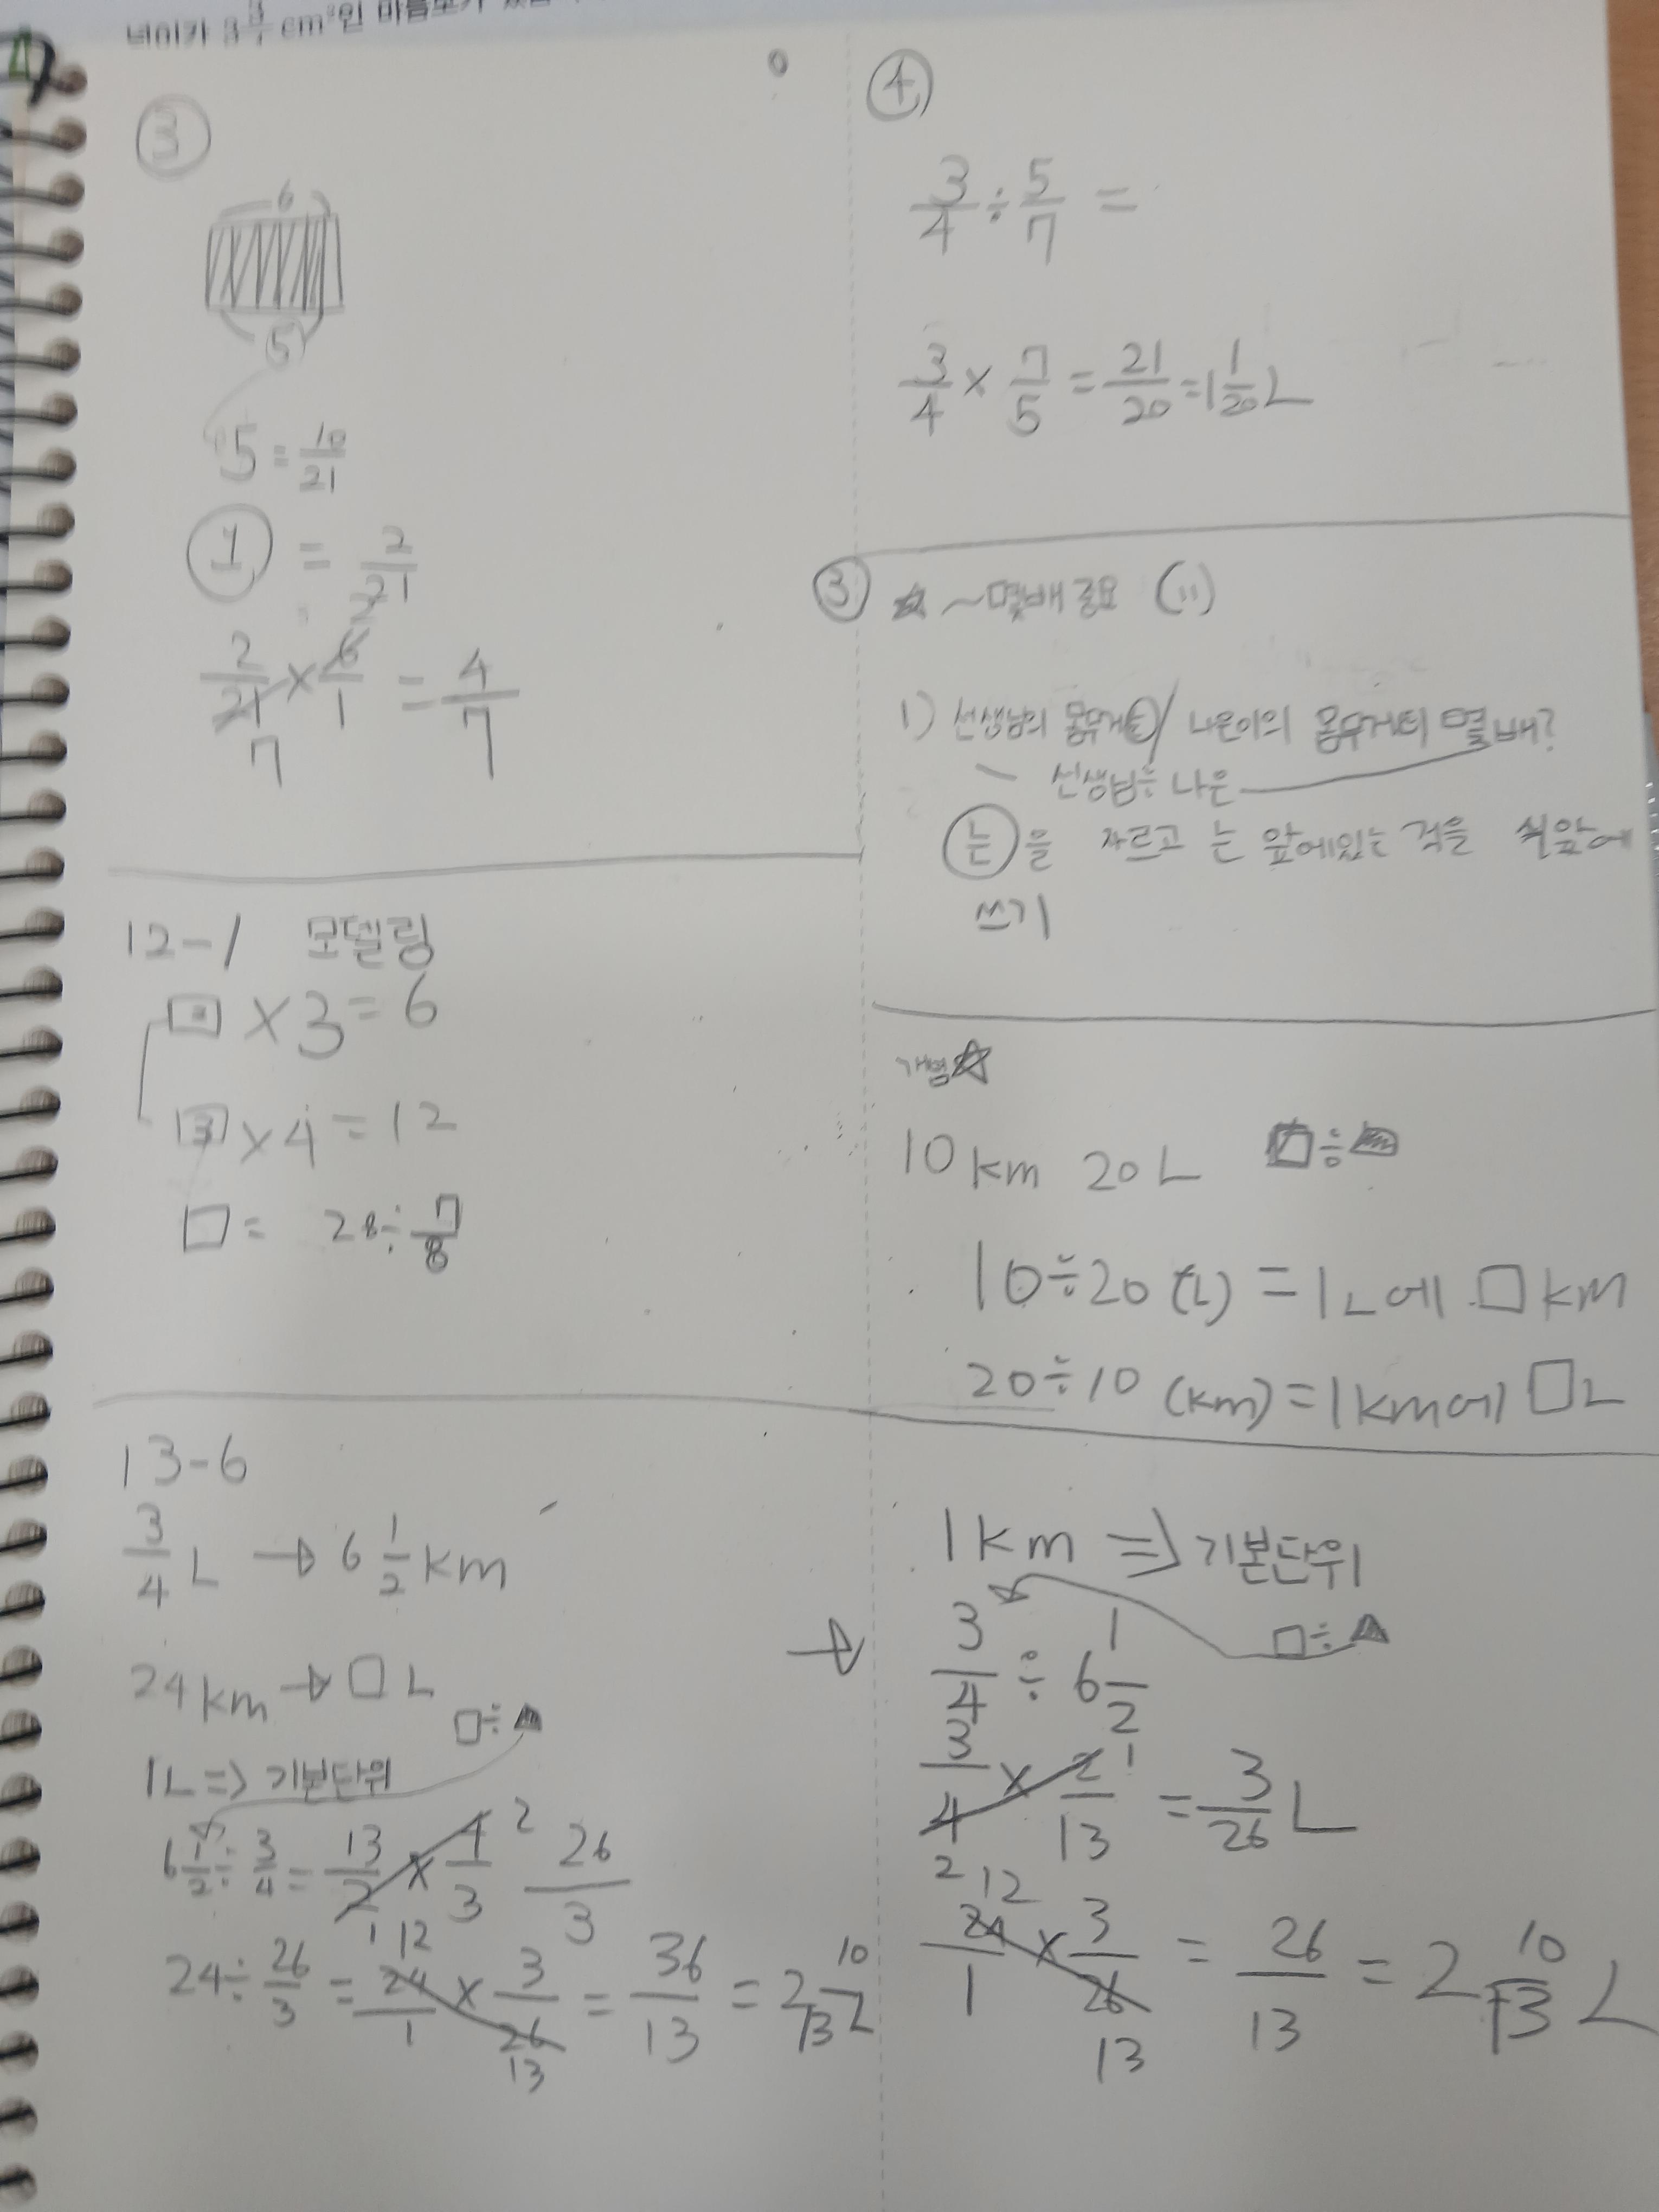 넓이가 3 3/7 cm²인 마름모가
③
6
5
5 = 10/21
① = 2/21
2/21 × 6/1 = 4/7
2
7
12-1 모델링
□ × 3 = 6
3 × 4 = 12
□ = 28 ÷ 7/8
13-6
3/4 L → 6 1/2 km
24 km → □ L
□ ÷ ▲
1L ⇒ 기본단위
6 1/2 ÷ 3/4 = 13/2 × 4/3 26/3
1 2
24 ÷ 26/3 = 24/1 × 3/26 = 36/13 = 2 10/13 L
12 13
④
3/4 ÷ 5/7 =
3/4 × 7/5 = 21/20 = 1 1/20 L
③ ☆ ~몇배 중요 (11)
1) 선생님의 몸무게는 / 나은이의 몸무게의 몇 배?
선생님 ÷ 나은
는을 자르고 는 앞에있는 것을 식앞에
쓰기
개념☆
10 km 20 L □ ÷
10 ÷ 20 (L) = 1L에 □ km
20 ÷ 10 (km) = 1km에 □ L
1km ⇒ 기본단위
□ ÷ ▲
→ 3/4 ÷ 6 1/2
3/4 × 2/13 = 3/26 L
2 1
24/1 × 3/26 = 26/13 = 2 10/13 L
12 13